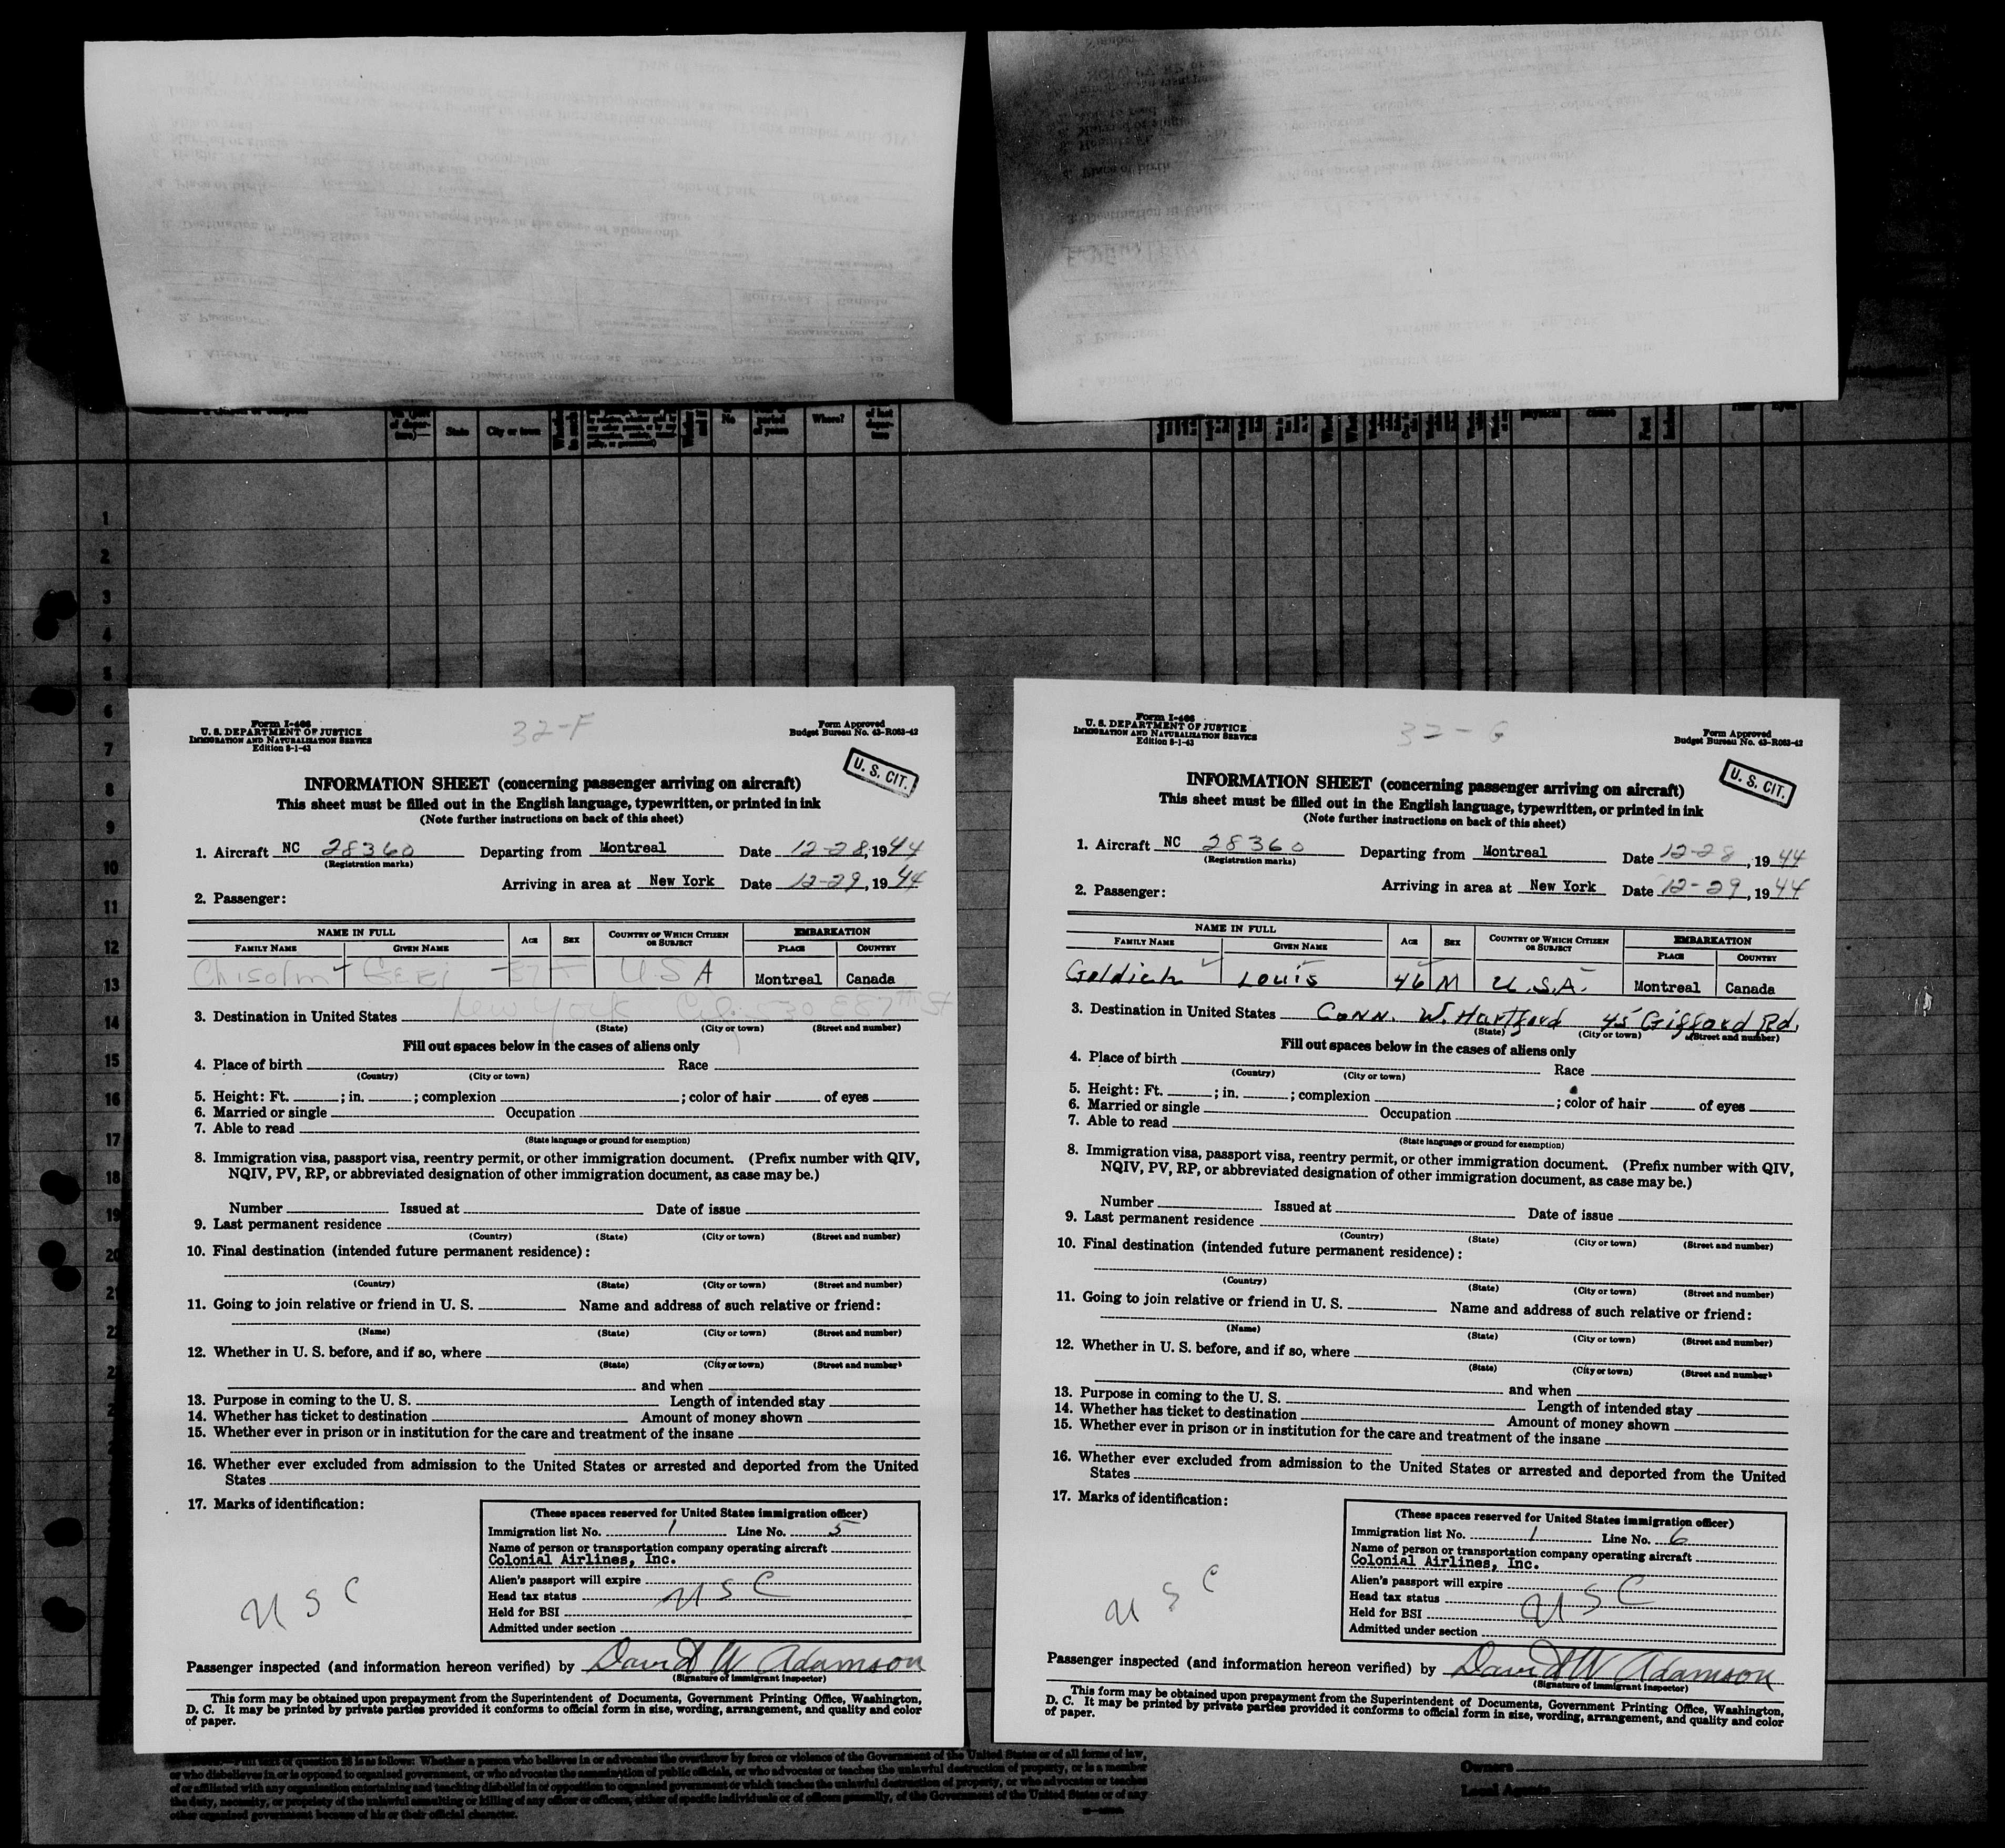 32-F
Form I-466
U. S. DEPARTMENT OF JUSTICE
IMMIGRATION AND NATURALIZATION SERVICE
Edition 8-1-43
Form Approved
Budget Bureau No. 43-R063-42
U. S. CIT.
INFORMATION SHEET (concerning passenger arriving on aircraft)
This sheet must be filled out in the English language, typewritten, or printed in ink
(Note further instructions on back of this sheet)
1. Aircraft NC 28360 Departing from Montreal Date 12-28, 1944
(Registration marks)
Arriving in area at New York Date 12-29, 1944
2. Passenger:
NAME IN FULL AGE SEX COUNTRY OF WHICH CITIZEN OR SUBJECT EMBARKATION
FAMILY NAME GIVEN NAME PLACE COUNTRY
Chisolm USA Montreal Canada
3. Destination in United States New York City 30 E 87th St
(State) (City or town) (Street and number)
Fill out spaces below in the cases of aliens only
4. Place of birth Race
(Country) (City or town)
5. Height: Ft. ; in. ; complexion ; color of hair of eyes
6. Married or single Occupation
7. Able to read
(State language or ground for exemption)
8. Immigration visa, passport visa, reentry permit, or other immigration document. (Prefix number with QIV,
NQIV, PV, RP, or abbreviated designation of other immigration document, as case may be.)
Number Issued at Date of issue
9. Last permanent residence
(Country) (State) (City or town) (Street and number)
10. Final destination (intended future permanent residence):
(Country) (State) (City or town) (Street and number)
11. Going to join relative or friend in U. S. Name and address of such relative or friend:
(Name) (State) (City or town) (Street and number)
12. Whether in U. S. before, and if so, where
(State) (City or town) (Street and number)
and when
13. Purpose in coming to the U. S. Length of intended stay
14. Whether has ticket to destination Amount of money shown
15. Whether ever in prison or in institution for the care and treatment of the insane
16. Whether ever excluded from admission to the United States or arrested and deported from the United
States
17. Marks of identification:
(These spaces reserved for United States immigration officer)
Immigration list No. 1 Line No. 5
Name of person or transportation company operating aircraft
Colonial Airlines, Inc.
Alien's passport will expire
Head tax status USC
Held for BSI
Admitted under section
USC
Passenger inspected (and information hereon verified) by David W Adamson
(Signature of immigrant inspector)
This form may be obtained upon prepayment from the Superintendent of Documents, Government Printing Office, Washington,
D. C. It may be printed by private parties provided it conforms to official form in size, wording, arrangement, and quality and color
of paper.
32-G
Form I-466
U. S. DEPARTMENT OF JUSTICE
IMMIGRATION AND NATURALIZATION SERVICE
Edition 8-1-43
Form Approved
Budget Bureau No. 43-R063-42
U. S. CIT.
INFORMATION SHEET (concerning passenger arriving on aircraft)
This sheet must be filled out in the English language, typewritten, or printed in ink
(Note further instructions on back of this sheet)
1. Aircraft NC 28360 Departing from Montreal Date 12-28, 1944
(Registration marks)
Arriving in area at New York Date 12-29, 1944
2. Passenger:
NAME IN FULL AGE SEX COUNTRY OF WHICH CITIZEN OR SUBJECT EMBARKATION
FAMILY NAME GIVEN NAME PLACE COUNTRY
Goldich Louis 46 M U.S.A. Montreal Canada
3. Destination in United States Conn. W. Hartford 45 Gifford Rd.
(State) (City or town) (Street and number)
Fill out spaces below in the cases of aliens only
4. Place of birth Race
(Country) (City or town)
5. Height: Ft. ; in. ; complexion ; color of hair of eyes
6. Married or single Occupation
7. Able to read
(State language or ground for exemption)
8. Immigration visa, passport visa, reentry permit, or other immigration document. (Prefix number with QIV,
NQIV, PV, RP, or abbreviated designation of other immigration document, as case may be.)
Number Issued at Date of issue
9. Last permanent residence
(Country) (State) (City or town) (Street and number)
10. Final destination (intended future permanent residence):
(Country) (State) (City or town) (Street and number)
11. Going to join relative or friend in U. S. Name and address of such relative or friend:
(Name) (State) (City or town) (Street and number)
12. Whether in U. S. before, and if so, where
(State) (City or town) (Street and number)
and when
13. Purpose in coming to the U. S. Length of intended stay
14. Whether has ticket to destination Amount of money shown
15. Whether ever in prison or in institution for the care and treatment of the insane
16. Whether ever excluded from admission to the United States or arrested and deported from the United
States
17. Marks of identification:
(These spaces reserved for United States immigration officer)
Immigration list No. 1 Line No. 6
Name of person or transportation company operating aircraft
Colonial Airlines, Inc.
Alien's passport will expire
Head tax status USC
Held for BSI
Admitted under section
USC
Passenger inspected (and information hereon verified) by David W Adamson
(Signature of immigrant inspector)
This form may be obtained upon prepayment from the Superintendent of Documents, Government Printing Office, Washington,
D. C. It may be printed by private parties provided it conforms to official form in size, wording, arrangement, and quality and color
of paper.
State City or town No Where?
1
2
3
4
5
6
7
8
9
10
11
12
13
14
15
16
17
18
19
20
full text of question 28 is as follows: Whether a person who believes in or advocates the overthrow by force or violence of the Government of the United States or of all forms of law,
or who disbelieves in or is opposed to organized government, or who advocates the assassination of public officials, or who advocates or teaches the unlawful destruction of property, or is a member
of or affiliated with any organization entertaining and teaching disbelief in or opposition to organized government or which teaches the unlawful destruction of property, or who advocates or teaches
the duty, necessity, or propriety of the unlawful assaulting or killing of any officer or officers, either of specific individuals or of officers generally, of the Government of the United States or of any
other organized government because of his or their official character.
Owners
Local Agents